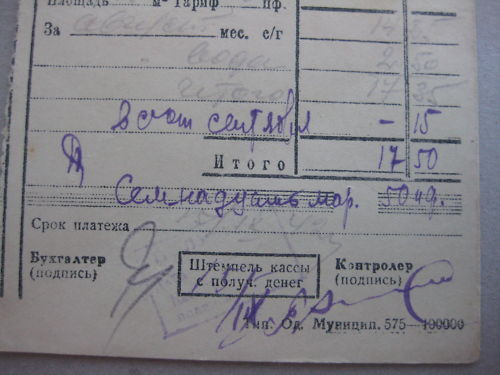 Площадь м² Тариф пф.
За август мес. е/г 14 85
" вода 2 50
итого 17 35
в счет сентября - 15
Итого 17 50
Семнадцать мар. 50 пф.
Срок платежа
Бухгалтер Штемпель кассы Контролер
(подпись) с получ. денег (подпись)
Тип. Од. Муницип. 575—100000